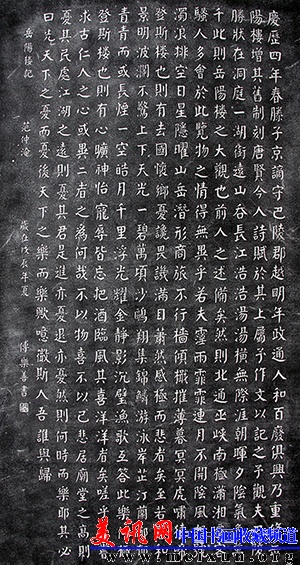 慶歷四年春滕子京謫守巴陵郡越明年政通人和百廢俱興乃重修岳
陽樓增其舊制刻唐賢今人詩賦於其上屬予作文以記之予觀夫巴陵
勝狀在洞庭一湖銜遠山吞長江浩浩湯湯橫無際涯朝暉夕陰氣象萬
千此則岳陽樓之大觀也前人之述備矣然則北通巫峽南極瀟湘遷客
騷人多會於此覽物之情得無異乎若夫霪雨霏霏連月不開陰風怒號
濁浪排空日星隱曜山岳潛形商旅不行檣傾楫摧薄暮冥冥虎嘯猿啼
登斯樓也則有去國懷鄉憂讒畏譏滿目蕭然感極而悲者矣至若春和
景明波瀾不驚上下天光一碧萬頃沙鷗翔集錦鱗游泳岸芷汀蘭郁郁
青青而或長煙一空皓月千里浮光耀金靜影沉璧漁歌互答此樂何極
登斯樓也則有心曠神怡寵辱皆忘把酒臨風其喜洋洋者矣嗟夫予嘗
求古仁人之心或異二者之為何哉不以物喜不以己悲居廟堂之高則
憂其民處江湖之遠則憂其君是進亦憂退亦憂然則何時而樂耶其必
曰先天下之憂而憂後天下之樂而樂歟噫微斯人吾誰與歸
岳陽樓記 范仲淹 歲在戊辰年夏 傅樂善書
美訊网 中国书画收藏频道
www.meixun.org